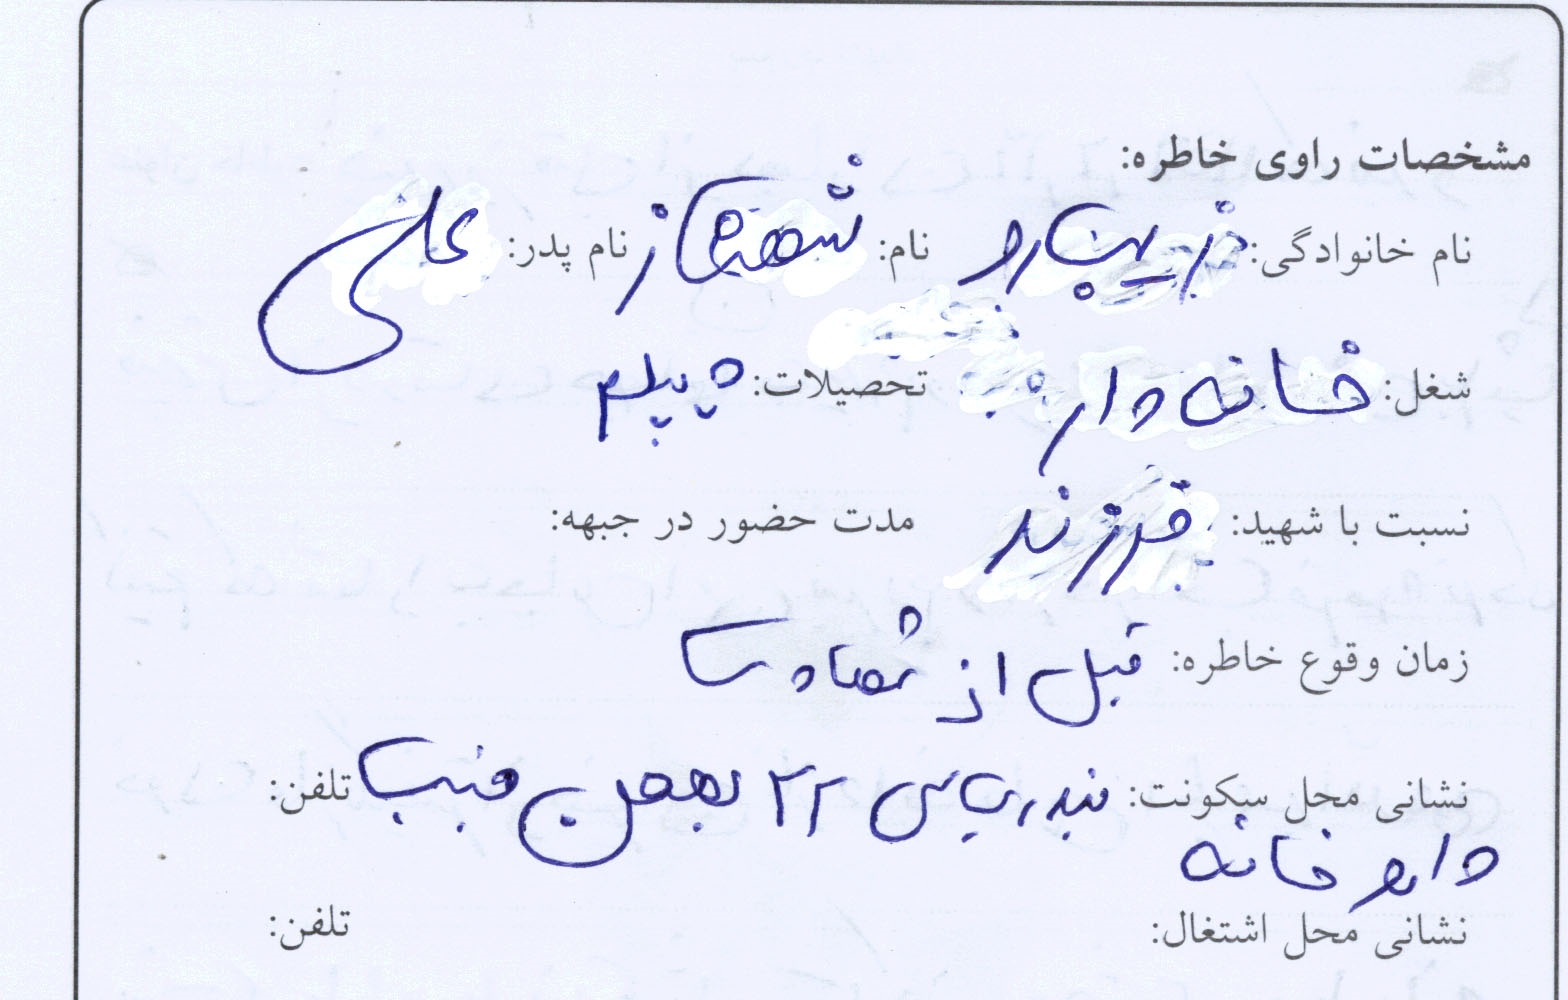 مشخصات راوی خاطره:
نام خانوادگی: زیبارو نام: شهناز نام پدر: علی
شغل: خانه دار تحصیلات: دیپلم
نسبت با شهید: فرزند مدت حضور در جبهه:
زمان وقوع خاطره: قبل از شهادت
نشانی محل سکونت: بندرعباس ۲۲ بهمن جنب تلفن:
داروخانه
نشانی محل اشتغال: تلفن: